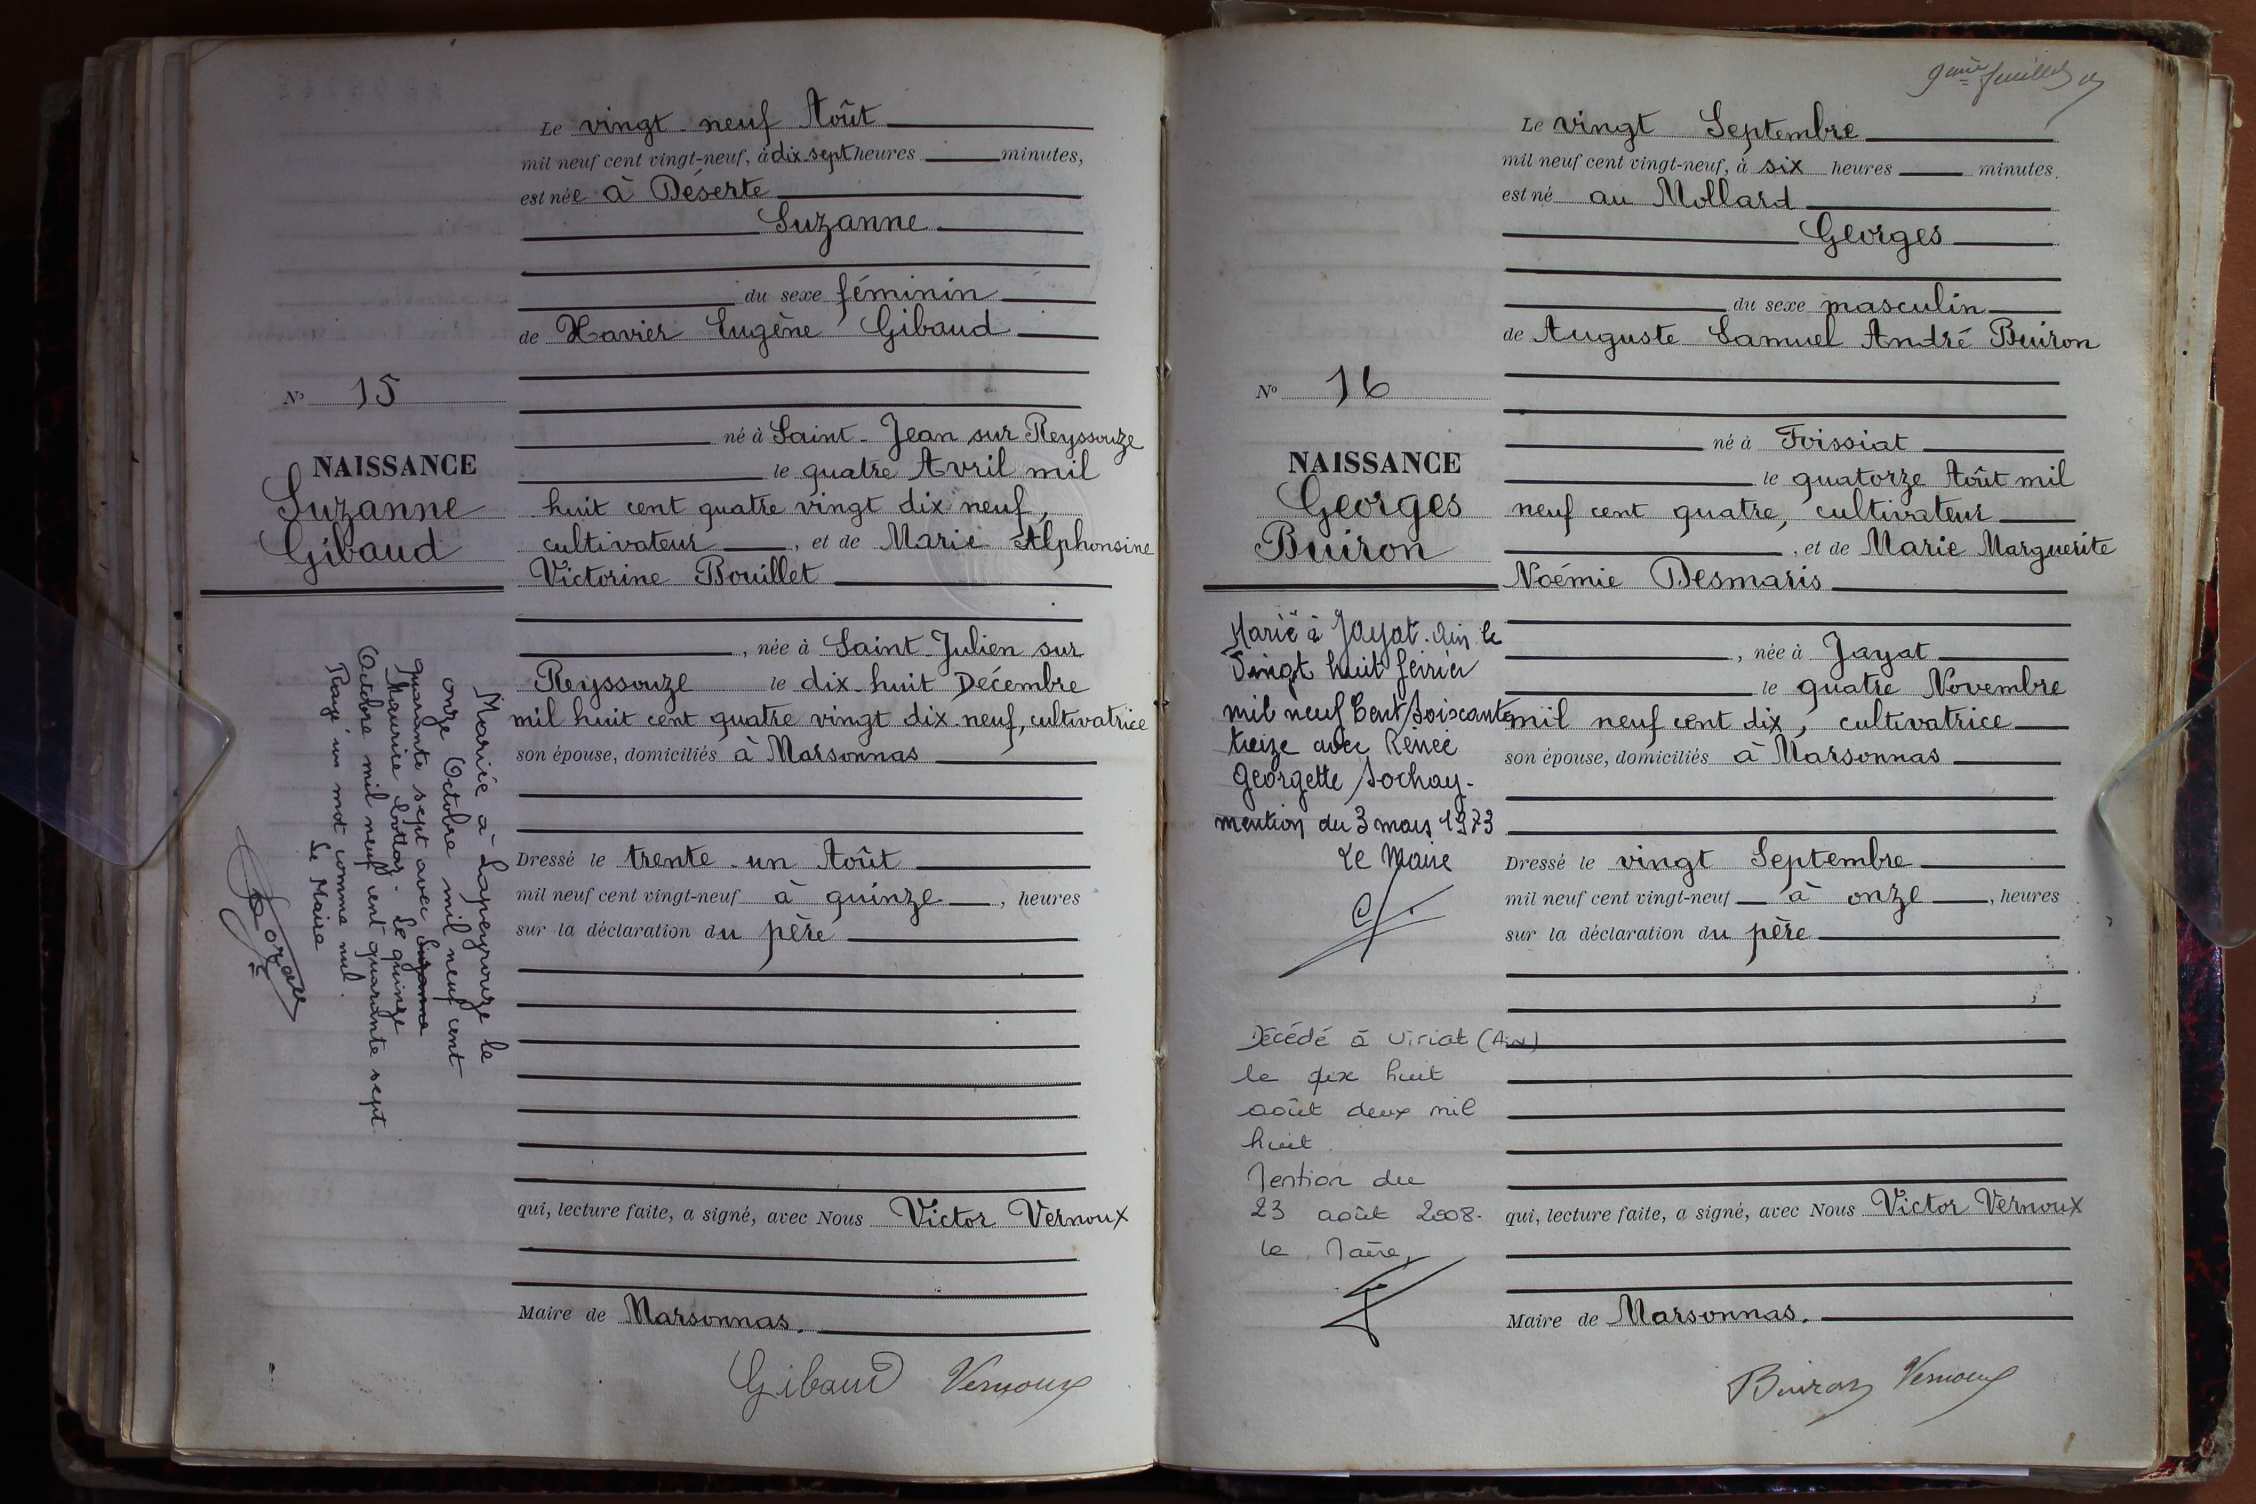 Le vingt-neuf Août
mil neuf cent vingt-neuf, à dix-sept heures minutes,
est née à Déserte
Suzanne
du sexe féminin
de Xavier Eugène Gibaud
N° 15
né à Saint-Jean sur Reyssouze
le quatre Avril mil
NAISSANCE
Suzanne
Gibaud
huit cent quatre vingt dix neuf,
cultivateur, et de Marie Alphonsine
Victorine Bouillet
, née à Saint-Julien sur
Reyssouze le dix-huit Décembre
mil huit cent quatre vingt dix-neuf, cultivatrice
son épouse, domiciliés à Marsonnas
Dressé le trente-un Août
mil neuf cent vingt-neuf à quinze, heures
sur la déclaration du père
qui, lecture faite, a signé, avec Nous Victor Vernoux
Maire de Marsonnas.
Gibaud Vernoux
Mariée à Lapeyrouze le
onze Octobre mil neuf cent
quarante sept avec Suzanne
Maurice - Le quinze
Octobre mil neuf cent quarante sept
Rayé un mot comme nul.
Le Maire
9ème feuillet
Le vingt Septembre
mil neuf cent vingt-neuf, à six heures minutes.
est né au Mollard
Georges
du sexe masculin
de Auguste Samuel André Buiron
N° 16
né à Foissiat
le quatorze Août mil
NAISSANCE
Georges
Buiron
neuf cent quatre, cultivateur
, et de Marie Marguerite
Noémie Desmaris
, née à Jayat
le quatre Novembre
mil neuf cent dix, cultivatrice
son épouse, domiciliés à Marsonnas
Dressé le vingt Septembre
mil neuf cent vingt-neuf à onze, heures
sur la déclaration du père
qui, lecture faite, a signé, avec Nous Victor Vernoux
Maire de Marsonnas.
Buiron Vernoux
Marié à Jayat. Ain le
Vingt huit février
mil neuf Cent Soixante
treize avec Renée
Georgette Sochay.
mention du 3 mars 1973
Le Maire
Décédé à Viriat (Ain)
le dix huit
août deux mil
huit.
Mention du
23 août 2008.
le Maire,